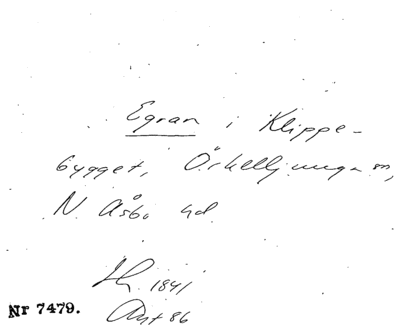 Egran i Klippe-
bygget, Örkelljunga sn,
N. Åsbo hd.
1841
Avt 86
Nr 7479.